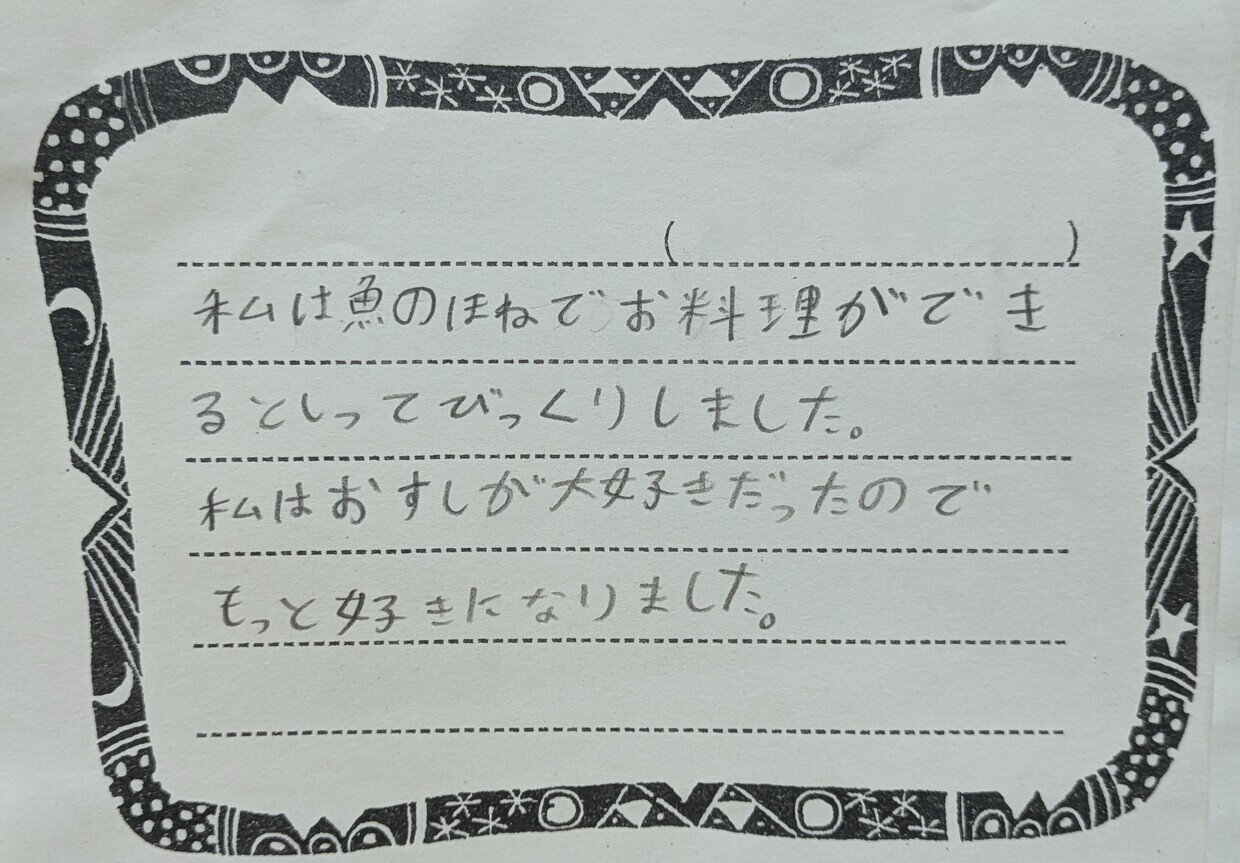 (　　　　　)
私は魚のほねでお料理ができ
るとしってびっくりしました。
私はおすしが大好きだったので
もっと好きになりました。